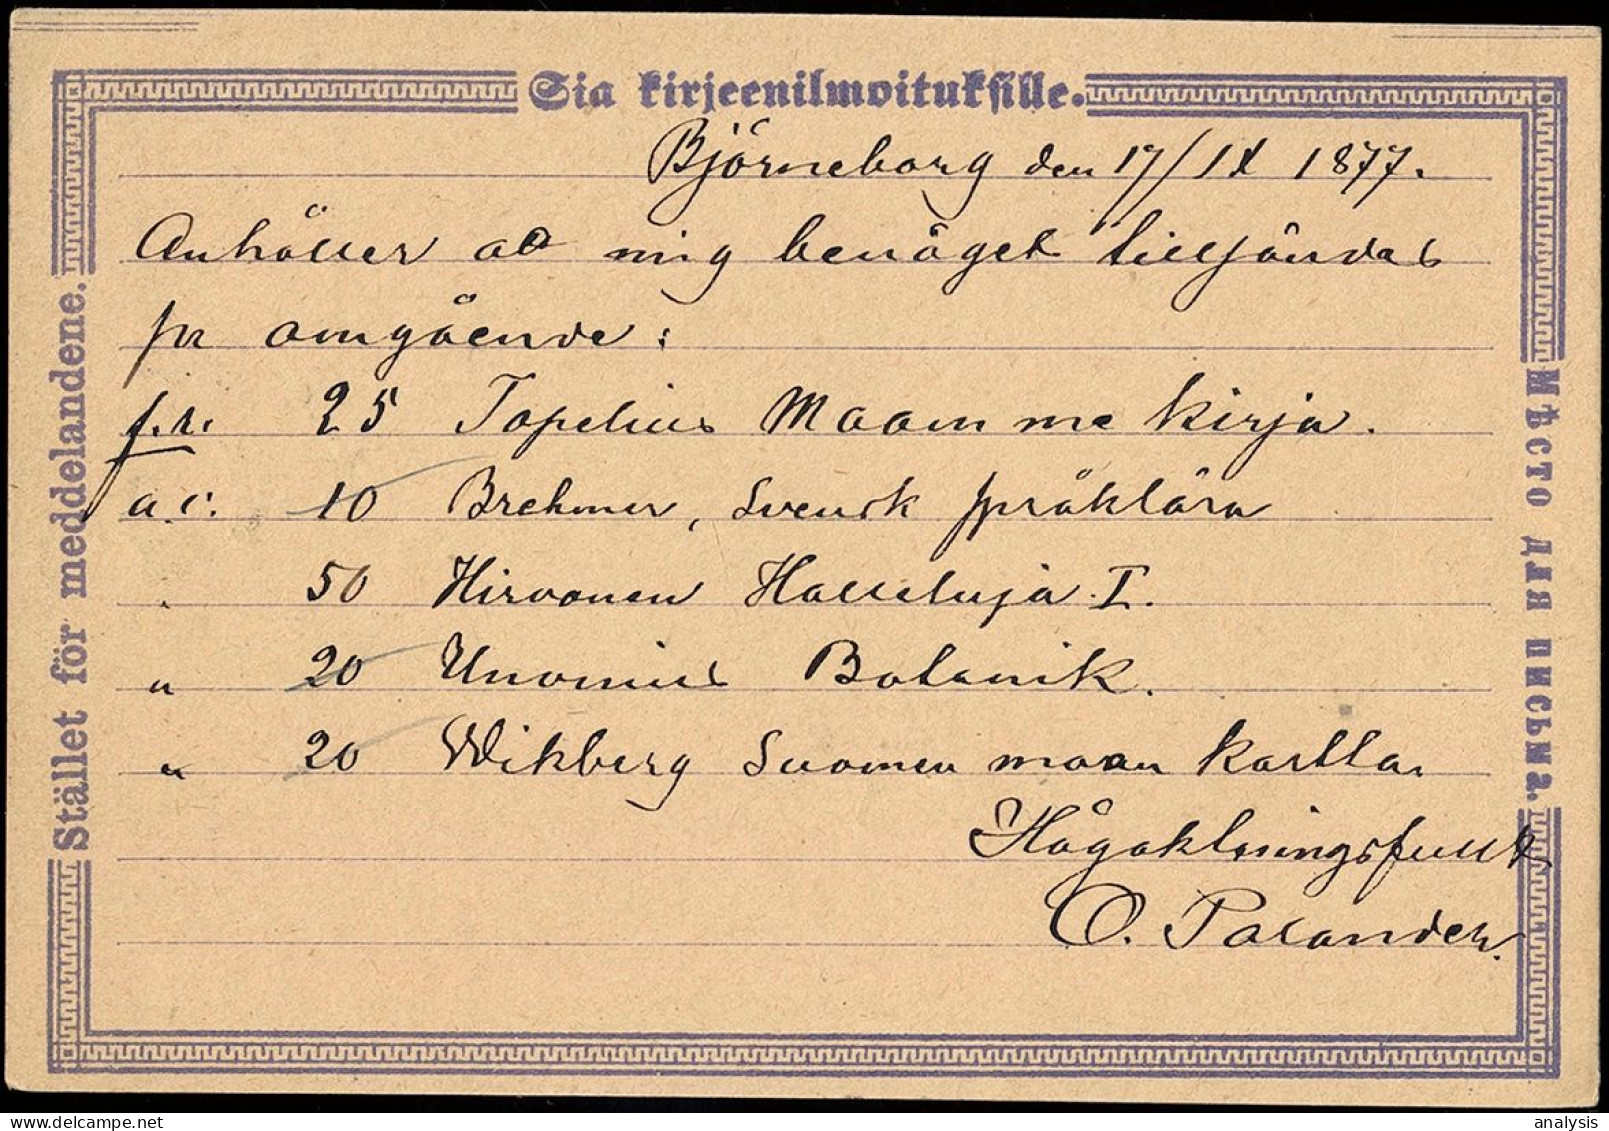 Sia kirjeenilmoituksille.
Stället för meddelandene.
Мѣсто для письма.
Björneborg den 17/IX 1877.
Anhåller att mig benäget tillsändas
pr omgående:
f.r. 25 Topelius Maamme kirja.
a.c. 10 Brehmer, Svensk språklära
" 50 Hirvonen Halleluja I.
" 20 Unonius Botanik.
" 20 Wikberg Suomen maan kartta.
Högaktningsfullt
O. Palander.
analysis